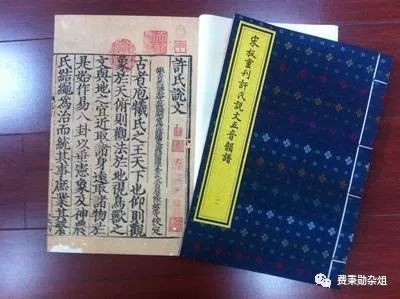 宋板重刊許氏說文五音韻譜
許氏說文
古者庖犧氏之王天下也仰則觀
象於天俯則觀法於地視鳥獸之
文與地之宜近取諸身遠取諸物於
是始作易八卦以垂憲象及神農
氏結繩為治而統其事庶業其繁
费秉勋杂俎